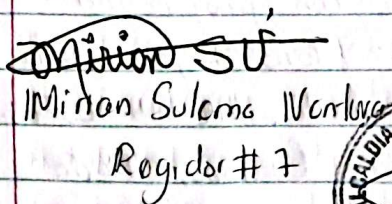 Mirian SU
Mirian Sulema
Regidor # 7
ALCALDIA